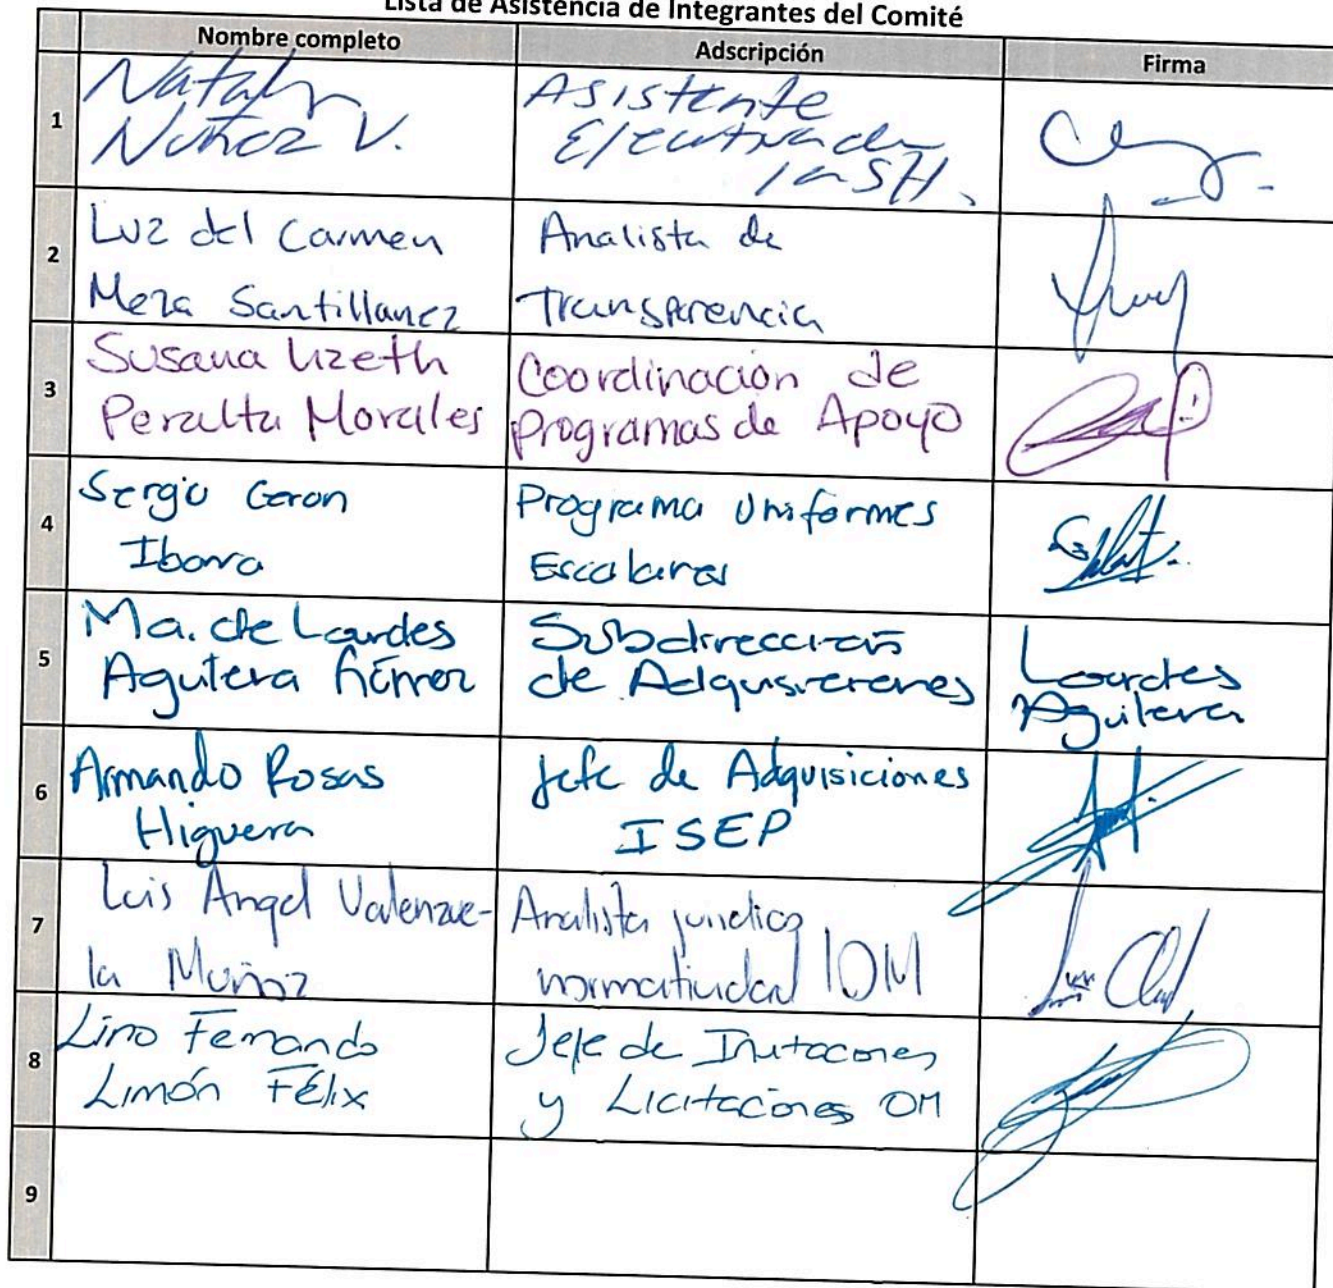 Lista de Asistencia de Integrantes del Comité
Nombre completo Adscripción Firma
1
Nataly
Nuñez V.
Asistente
Ejecutiva de
la SH.
2
Luz del Carmen
Meza Santillanez
Analista de
Transparencia
3
Susana Lizeth
Peralta Morales
Coordinación de
Programas de Apoyo
4
Sergio Ceron
Ibarra
Programa Uniformes
Escolares
5
Ma. de Lourdes
Aguilera Gómez
Subdirección
de Adquisiciones
Lourdes
Aguilera
6
Armando Rosas
Higuera
Jefe de Adquisiciones
ISEP
7
Luis Angel Valenzue-
la Muñoz
Analista jurídico
normatividad OM
8
Lino Fernando
Limón Félix
Jefe de Invitaciones
y Licitaciones OM
9